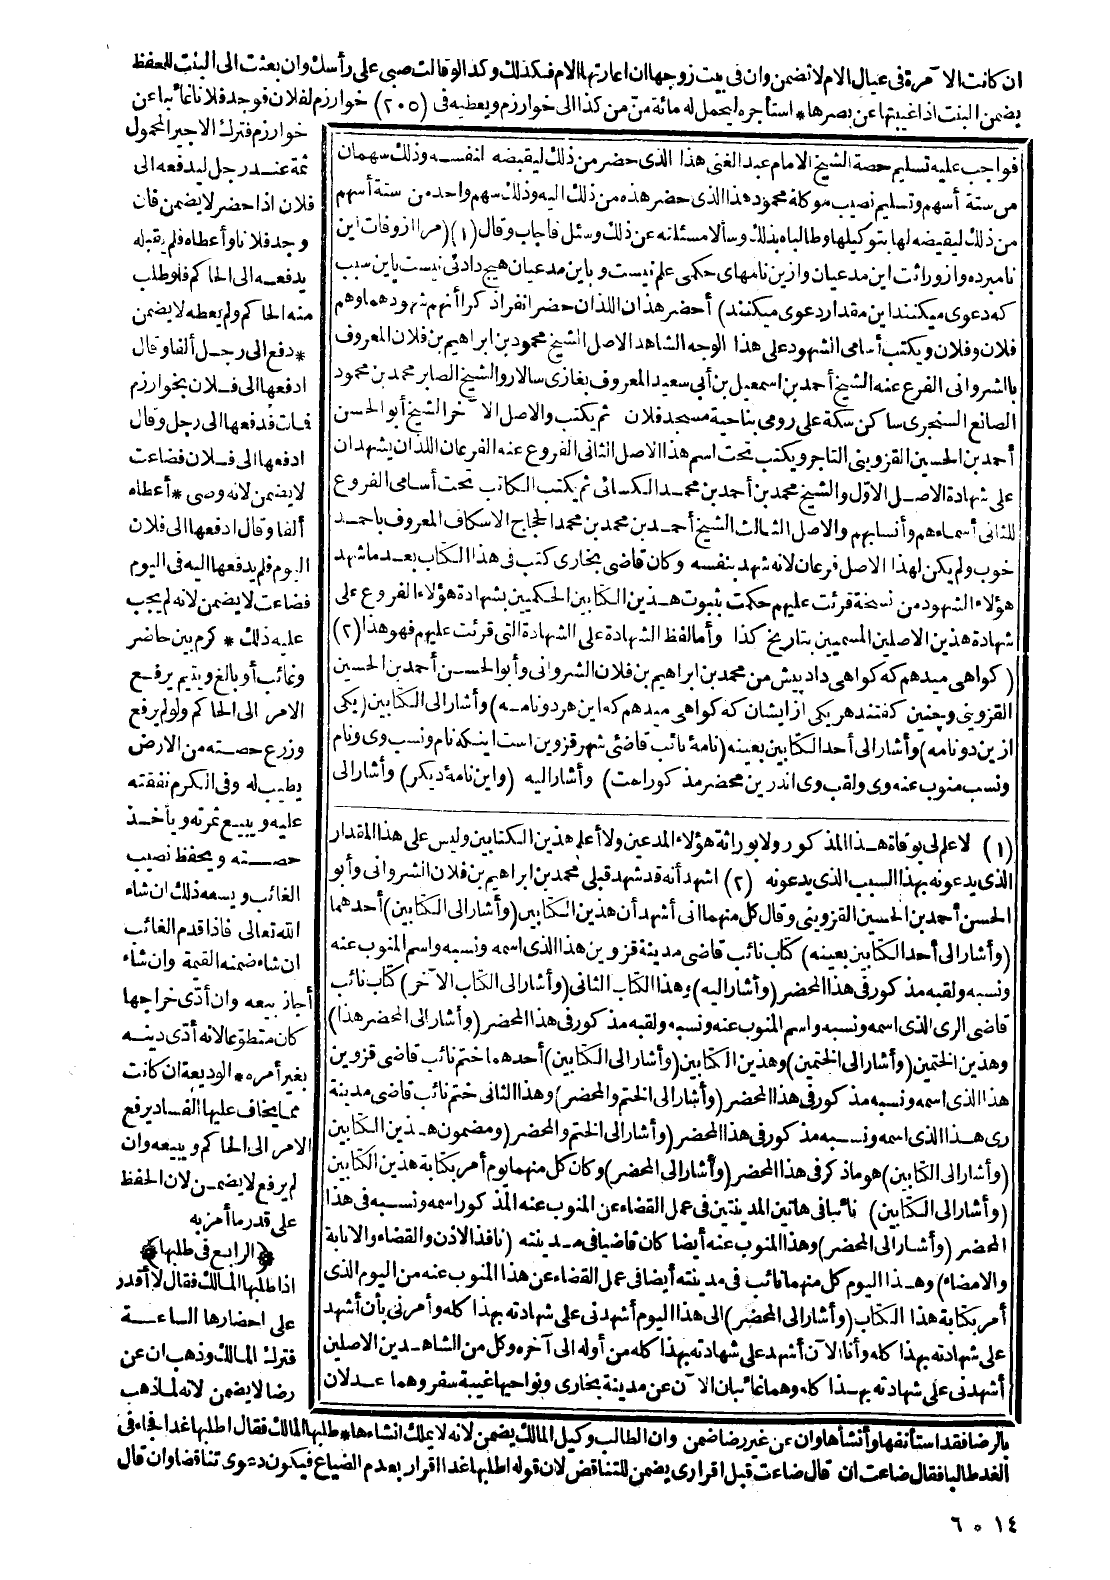 ان كانت الآمرة فى عيال الام لا تضمن وان فى بيت زوجها ان اعارتها الام فكذلك وكذا لو قالت صبى على رأسك وان بعثت الى البنت للحفظ
يضمن البنت اذا غيبتها عن بصرها * استأجره ليحمل له مائة منّ من كذا الى خوارزم ويعطيه فى (٢٠٥) خوارزم لفلان فوجد فلانا غائبا عن
خوارزم فترك الاجير المحمول
ثمة عند رجل ليدفعه الى
فلان اذا حضر لا يضمن فان
وجد فلانا وأعطاه فلم يقبله
يدفعه الى الحاكم فلو طلب
منه الحاكم ولم يعطه لا يضمن
* دفع الى رجل ألفا وقال
ادفعها الى فلان بخوارزم
فمات فدفعها الى رجل وقال
ادفعها الى فلان فضاعت
لا يضمن لانه وصى * أعطاه
ألفا وقال ادفعها الى فلان
اليوم فلم يدفعها اليه فى اليوم
فضاعت لا يضمن لانه لم يجب
عليه ذلك * كرم بين حاضر
وغائب أو بالغ ويتيم يرفع
الامر الى الحاكم ولو لم يرفع
وزرع حصته من الارض
يطيب له وفى الكرم نفقته
عليه ويبيع ثمرته ويأخذ
حصته ويحفظ نصيب
الغائب ويسعه ذلك ان شاء
الله تعالى فاذا قدم الغائب
ان شاء ضمنه القيمة وان شاء
أجاز بيعه وان أدّى خراجها
كان متطوعا لانه أدّى دينه
بغير أمره * الوديعة ان كانت
مما يخاف عليها الفساد يرفع
الامر الى الحاكم ويبيعه وان
لم يرفع لا يضمن لان الحفظ
على قدر ما أمر به
﴿الرابع فى طلبها﴾
اذا طلبها المالك فقال لا أقدر
على احضارها الساعة
فترك المالك وذهب ان عن
رضا لا يضمن لانه لما ذهب
فواجب عليه تسليم حصة الشيخ الامام عبد الغنى هذا الذى حضر من ذلك ليقبضه لنفسه وذلك سهمان
من ستة أسهم وتسليم نصيب موكلة محمود هذا الذى حضر هذه من ذلك اليه وذلك سهم واحد من ستة أسهم
من ذلك ليقبضه لها بتوكيلها وطالباه بذلك وسألا مسئلته عن ذلك وسئل فأجاب وقال (١) (مرا از وفات اين
نامبرده واز وراثت اين مدعيان وازين نامهاى حكمى علم نيست وباين مدعيان هيچ دادنى نيست باين سبب
كه دعوى ميكنند اين مقدار دعوى ميكنند) أحضر هذان اللذان حضرا نفرا ذكرا أنهم شهودهما وهم
فلان وفلان ويكتب أسامى الشهود على هذا الوجه الشاهد الاصل الشيخ محمود بن ابراهيم بن فلان المعروف
بالشروانى الفرع عنه الشيخ أحمد بن اسمعيل بن أبى سعيد المعروف بغازى سالار والشيخ الصابر محمد بن محمود
الصانع السنجرى ساكن سكة على رومى بناحية مسجد فلان ثم يكتب والاصل الآخر الشيخ أبو الحسن
أحمد بن الحسين القزوينى التاجر ويكتب تحت اسم هذا الاصل الثانى الفروع عنه الفرعان اللذان يشهدان
على شهادة الاصل الاوّل والشيخ محمد بن أحمد بن محمد الكسائى ثم يكتب الكاتب تحت أسامى الفروع
للثانى أسماءهم وأنسابهم والاصل الثالث الشيخ أحمد بن محمد بن محمد الحجاج الاسكاف المعروف باحمد
خوب ولم يكن لهذا الاصل فرعان لانه شهد بنفسه وكان قاضى بخارى كتب فى هذا الكتاب بعد ما شهد
هؤلاء الشهود من نسخة قرئت عليهم حكمت بثبوت هذين الكتابين الحكميين بشهادة هؤلاء الفروع على
شهادة هذين الاصلين المسميين بتاريخ كذا وأما لفظ الشهادة على الشهادة التى قرئت عليهم فهو هذا (٢)
(كواهى ميدهم كه كواهى داد پيش من محمد بن ابراهيم بن فلان الشروانى وأبو الحسن أحمد بن الحسين
القزوينى وچنين كفتند هر يكى از ايشان كه كواهى ميدهم كه اين هر دو نامه) وأشار الى الكتابين (يكى
ازين دو نامه) وأشار الى أحد الكتابين بعينه (نامهٔ نائب قاضئ شهر قزوين است اينكه نام ونسب وى ونام
ونسب منوب عنه وى ولقب وى اندرين محضر مذكور است) وأشار اليه (واين نامهٔ ديكر) وأشار الى
(١) لا علم لى بوفاة هذا المذكور ولا بوراثة هؤلاء المدعين ولا أعلم هذين الكتابين وليس على هذا المقدار
الذى يدعونه بهذا السبب الذى يدعونه (٢) اشهد أنه قد شهد قبلى محمد بن ابراهيم بن فلان الشروانى وأبو
الحسن أحمد بن الحسين القزوينى وقال كل منهما انى أشهد أن هذين الكتابين (وأشار الى الكتابين) أحدهما
(وأشار الى أحد الكتابين بعينه) كتاب نائب قاضى مدينة قزوين هذا الذى اسمه ونسبه واسم المنوب عنه
ونسبه ولقبه مذكور فى هذا المحضر (وأشار اليه) وهذا الكتاب الثانى (وأشار الى الكتاب الآخر) كتاب نائب
قاضى الرى الذى اسمه ونسبه واسم المنوب عنه ونسبه ولقبه مذكور فى هذا المحضر (وأشار الى المحضر هذا)
وهذين الختمين (وأشار الى الختمين) وهذين الكتابين (وأشار الى الكتابين) أحدهما ختم نائب قاضى قزوين
هذا الذى اسمه ونسبه مذكور فى هذا المحضر (وأشار الى الختم والمحضر) وهذا الثانى ختم نائب قاضى مدينة
رى هذا الذى اسمه ونسبه مذكور فى هذا المحضر (وأشار الى الختم والمحضر) ومضمون هذين الكتابين
(وأشار الى الكتابين) هو ما ذكر فى هذا المحضر (وأشار الى المحضر) وكان كل منهما يوم أمر بكتابة هذين الكتابين
(وأشار الى الكتابين) نائبا فى هاتين المدينتين فى عمل القضاء عن المنوب عنه المذكور اسمه ونسبه فى هذا
المحضر (وأشار الى المحضر) وهذا المنوب عنه أيضا كان قاضيا فى مدينته (نافذ الاذن والقضاء والانابة
والامضاء) وهذا اليوم كل منهما نائب فى مدينته أيضا فى عمل القضاء عن هذا المنوب عنه من اليوم الذى
أمر بكتابة هذا الكتاب (وأشار الى المحضر) الى هذا اليوم أشهدنى على شهادته بهذا كله وأمرنى بأن أشهد
على شهادته بهذا كله وأنا الآن أشهد على شهادته بهذا كله من أوله الى آخره وكل من الشاهدين الاصلين
أشهدنى على شهادته بهذا كله وهما غائبان الآن عن مدينة بخارى ونواحيها غيبة سفر وهما عدلان
بالرضا فقد استأنفها وأنشأها وان عن غير رضا ضمن وان الطالب وكيل المالك يضمن لانه لا يملك انشاءها * طلبها المالك فقال اطلبها غدا فجاء فى
الغد طالبا فقال ضاعت ان قال ضاعت قبل اقرارى يضمن للتناقض لان قوله اطلبها غدا اقرار بعدم الضياع فيكون دعوى تناقضا وان قال
٦ ٥ ١٤